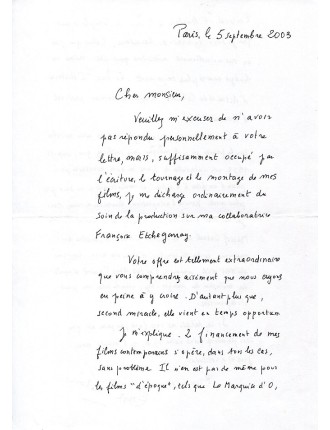 Paris, le 5 septembre 2003
Cher monsieur,
Veuillez m'excuser de n'avoir
pas répondu personnellement à votre
lettre, mais, suffisamment occupé par
l'écriture, le tournage et le montage de mes
films, je me décharge ordinairement du
soin de la production sur ma collaboratrice
Françoise Etchegaray.
Votre offre est tellement extraordinaire
que vous comprendrez aisément que nous ayons
eu peine à y croire. D'autant plus que,
second miracle, elle vient en temps opportun.
Je m'explique. Le financement de mes
films contemporains s'opère, dans tous les cas,
sans problème. Il n'en est pas de même pour
les films "d'époque", tels que La Marquise d'O,